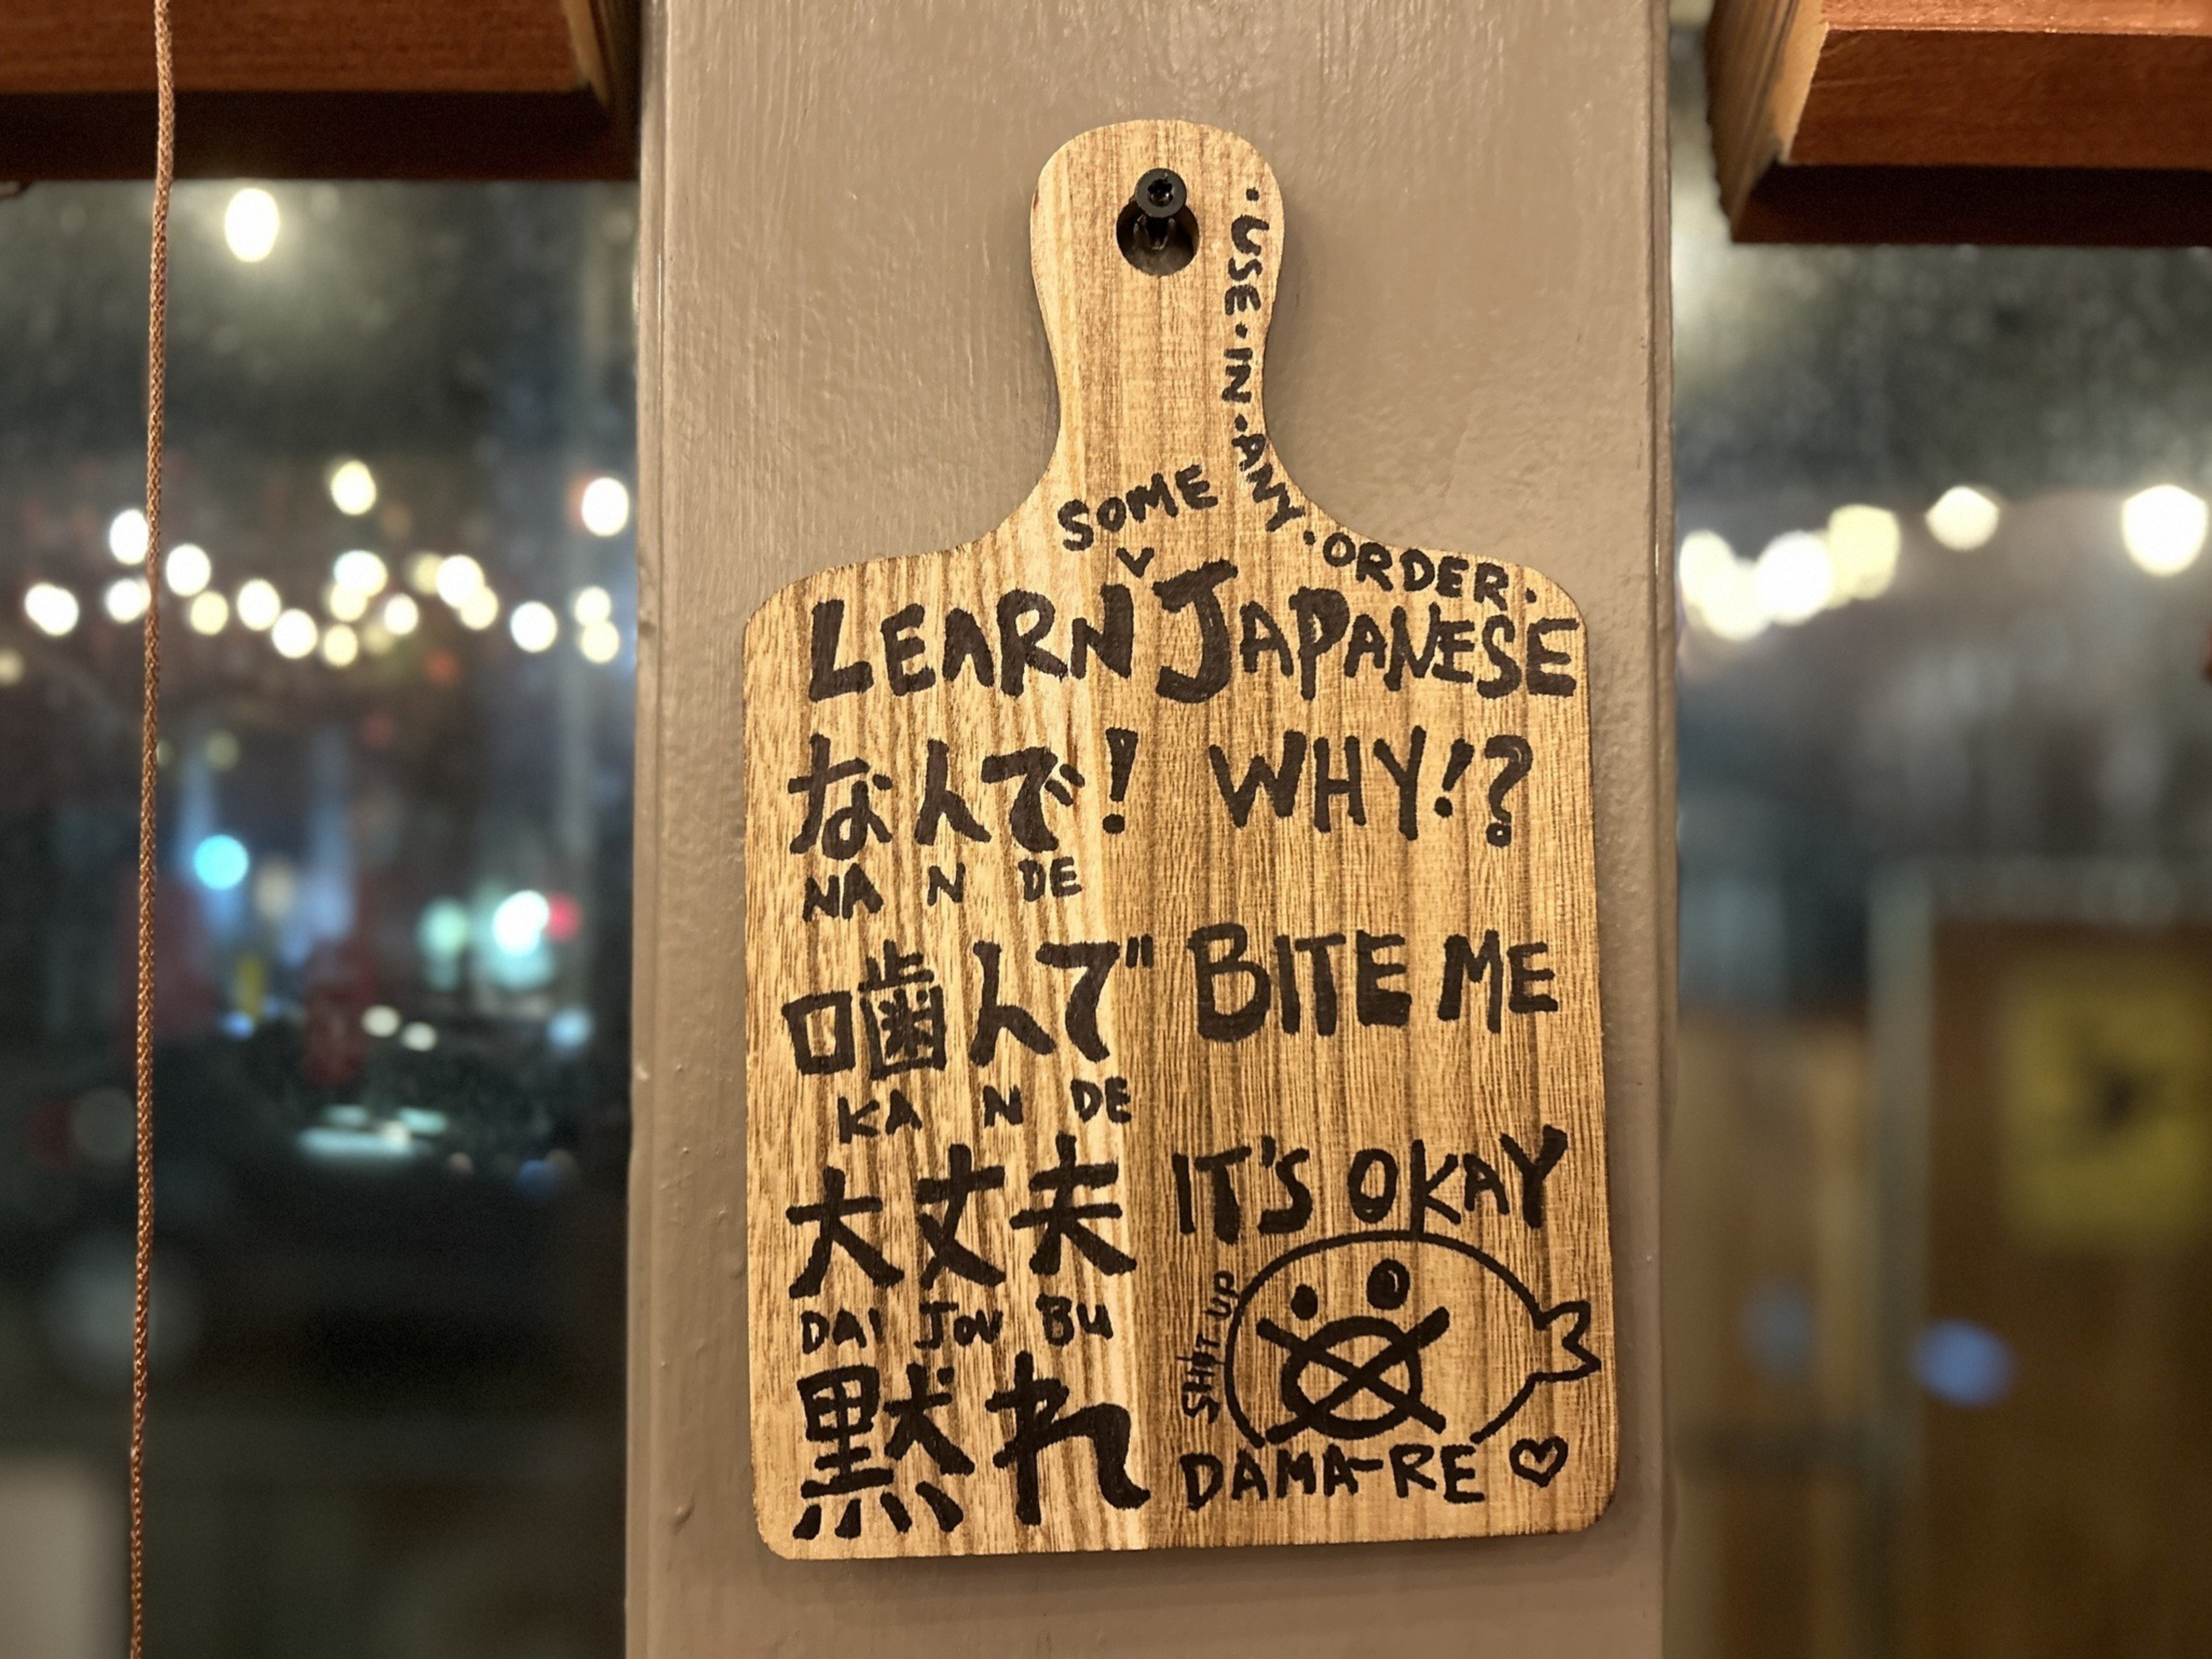 ・USE・IN・ANY・ORDER・
SOME
LEARN JAPANESE
なんで! WHY!?
NA N DE
噛んで BITE ME
KA N DE
大丈夫 IT'S OKAY
DAI JOU BU
SHUT UP
黙れ DAMA-RE ♡